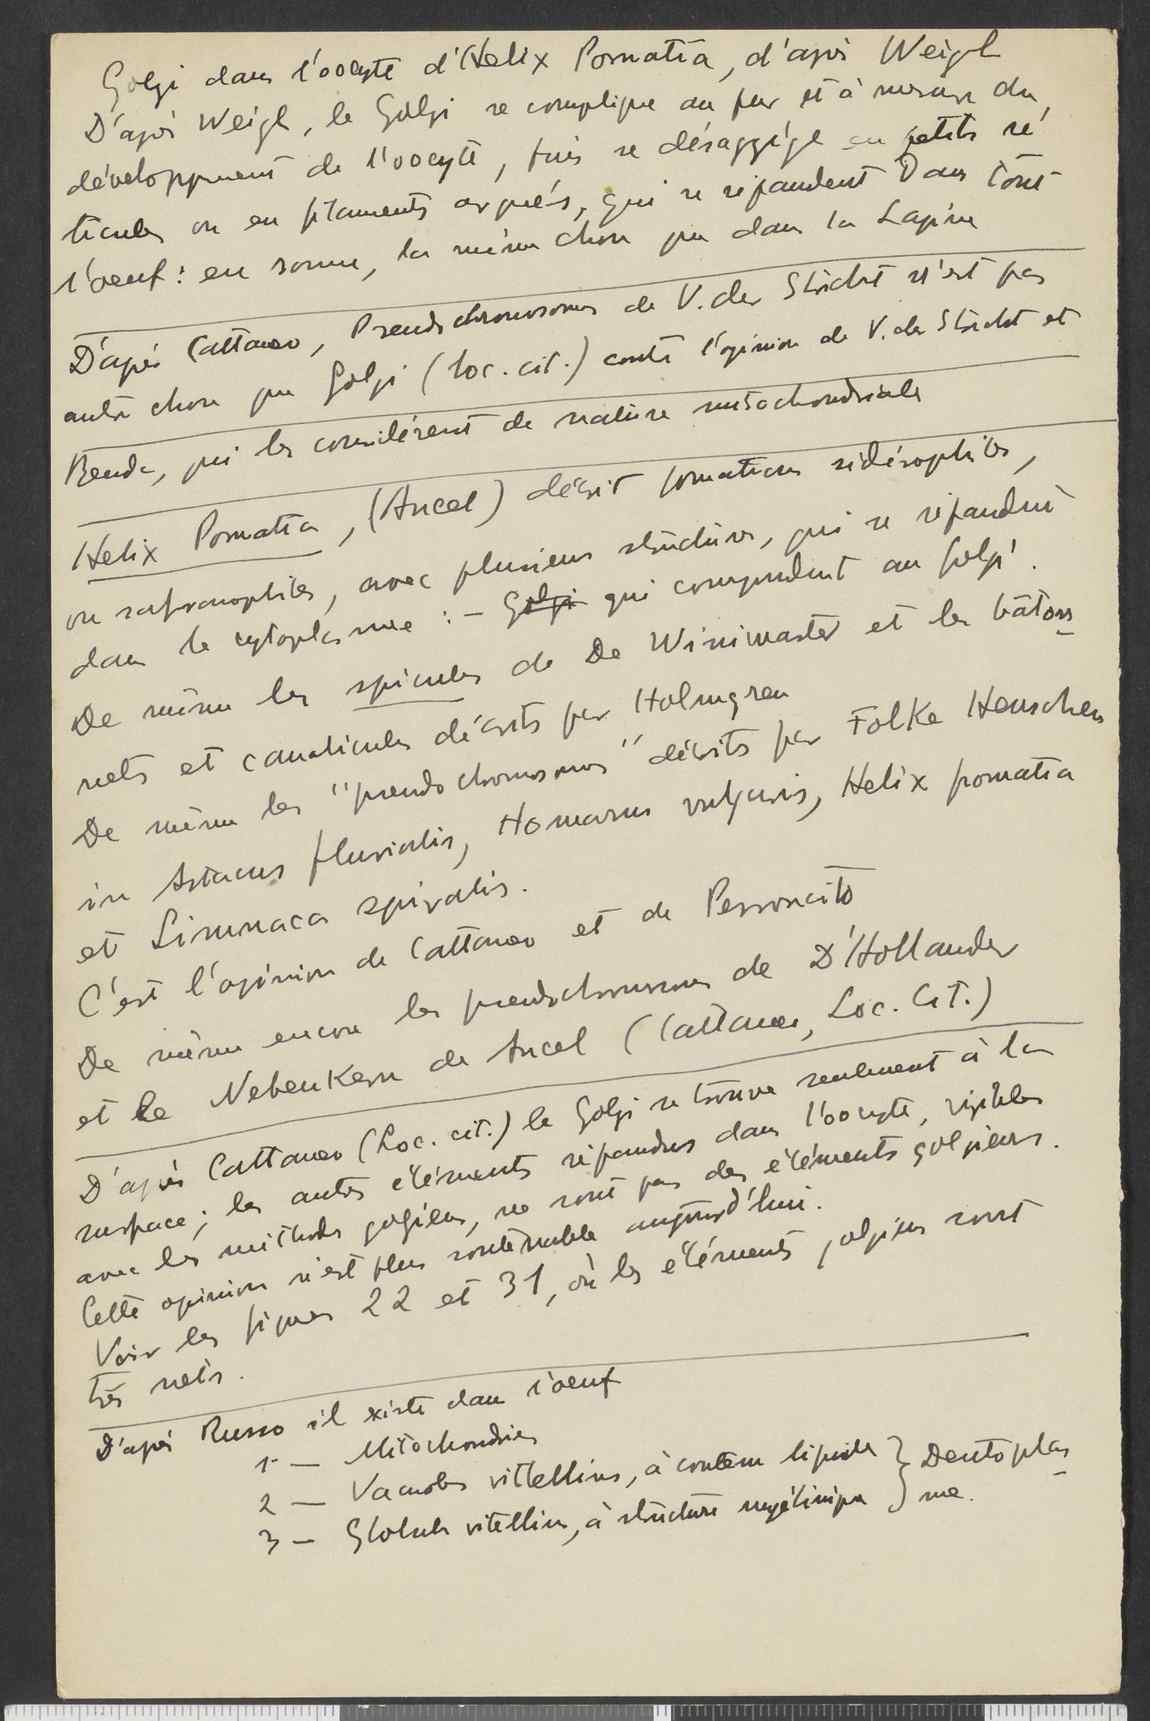 Golgi dans l'oocyte d'Helix Pomatia, d'après Weigl
D'après Weigl, le Golgi se complique au fur et à mesure du
développement de l'oocyte, puis se désaggrége en petits ré
ticules ou en filaments arqués, qui se répandent Dans tout
l'oeuf: en somme, la même chose que dans la Lapine
D'après Cattaneo, Pseudochromosomes de V. der Stricht n'est pas
autre chose que Golgi (loc. cit.) contre l'opinion de V. der Stricht et
Benda, qui les considérent de nature mitochondriale
Helix Pomatia, (Ancel) décrit formations sidérophiles,
ou safranophiles, avec plusieurs structures, qui se répandent
dans le cytoplasme : - Golgi qui correspondent au Golgi.
De même les spicules de De Winiwarter et les bâton
nets et canalicules décrits par Holmgren
De même les "pseudochromosomes" décrits par Folke Henschen
in Astacus fluvialis, Homarus vulgaris, Helix pomatia
et Limnaca spiralis.
C'est l'opinion de Cattaneo et de Perroncito
De même encore les pseudochromosomes de D'Hollander
et le Nebenkern de Ancel (Cattaneo, Loc. Cit.)
D'après Cattaneo (Loc. cit.) le Golgi se trouve seulement à la
surface; les autres éléments répandus dans l'oocyte, visibles
avec les méthodes golgiens, ne sont pas des éléments golgiens.
Cette opinion n'est plus soutenable aujourd'hui.
Voir les figures 22 et 31, où les éléments golgiens sont
très nets.
D'après Russo il existe dans l'oeuf
1 — Mitochondries
2 — Vacuoles vittellins, à contenu lipoide } Deutoplas
3 — Globules vitellins, à structure myélinique } me.